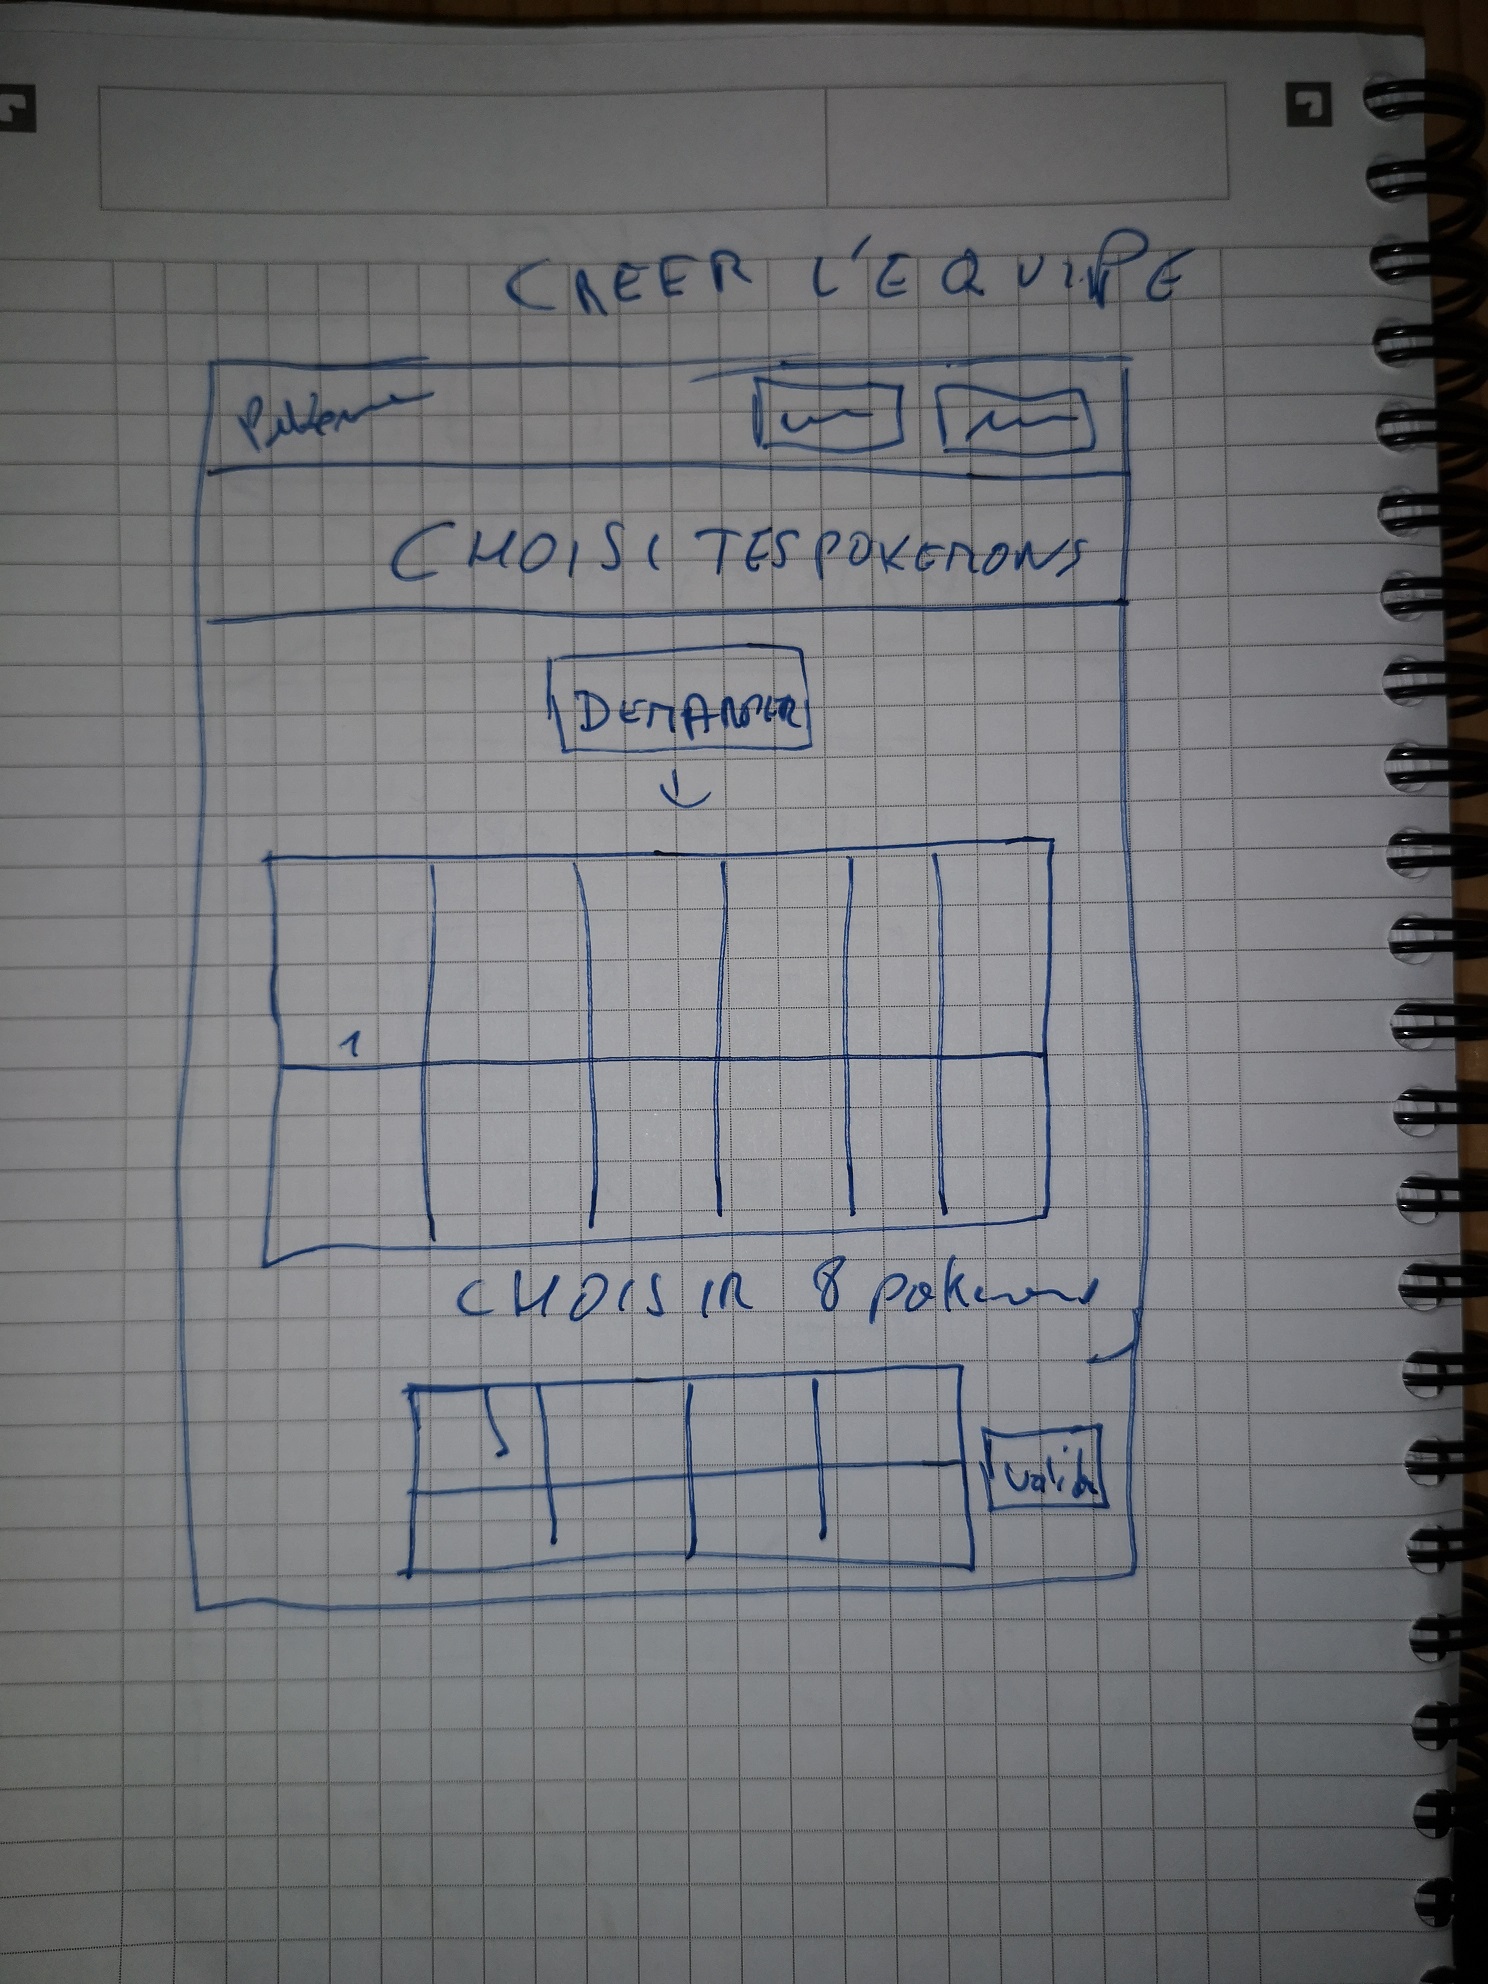 CREER L'EQUIPE
Pokemon
CHOISI TES POKEMONS
DEMANDER
1
CHOISIR 8 pokemons
valider